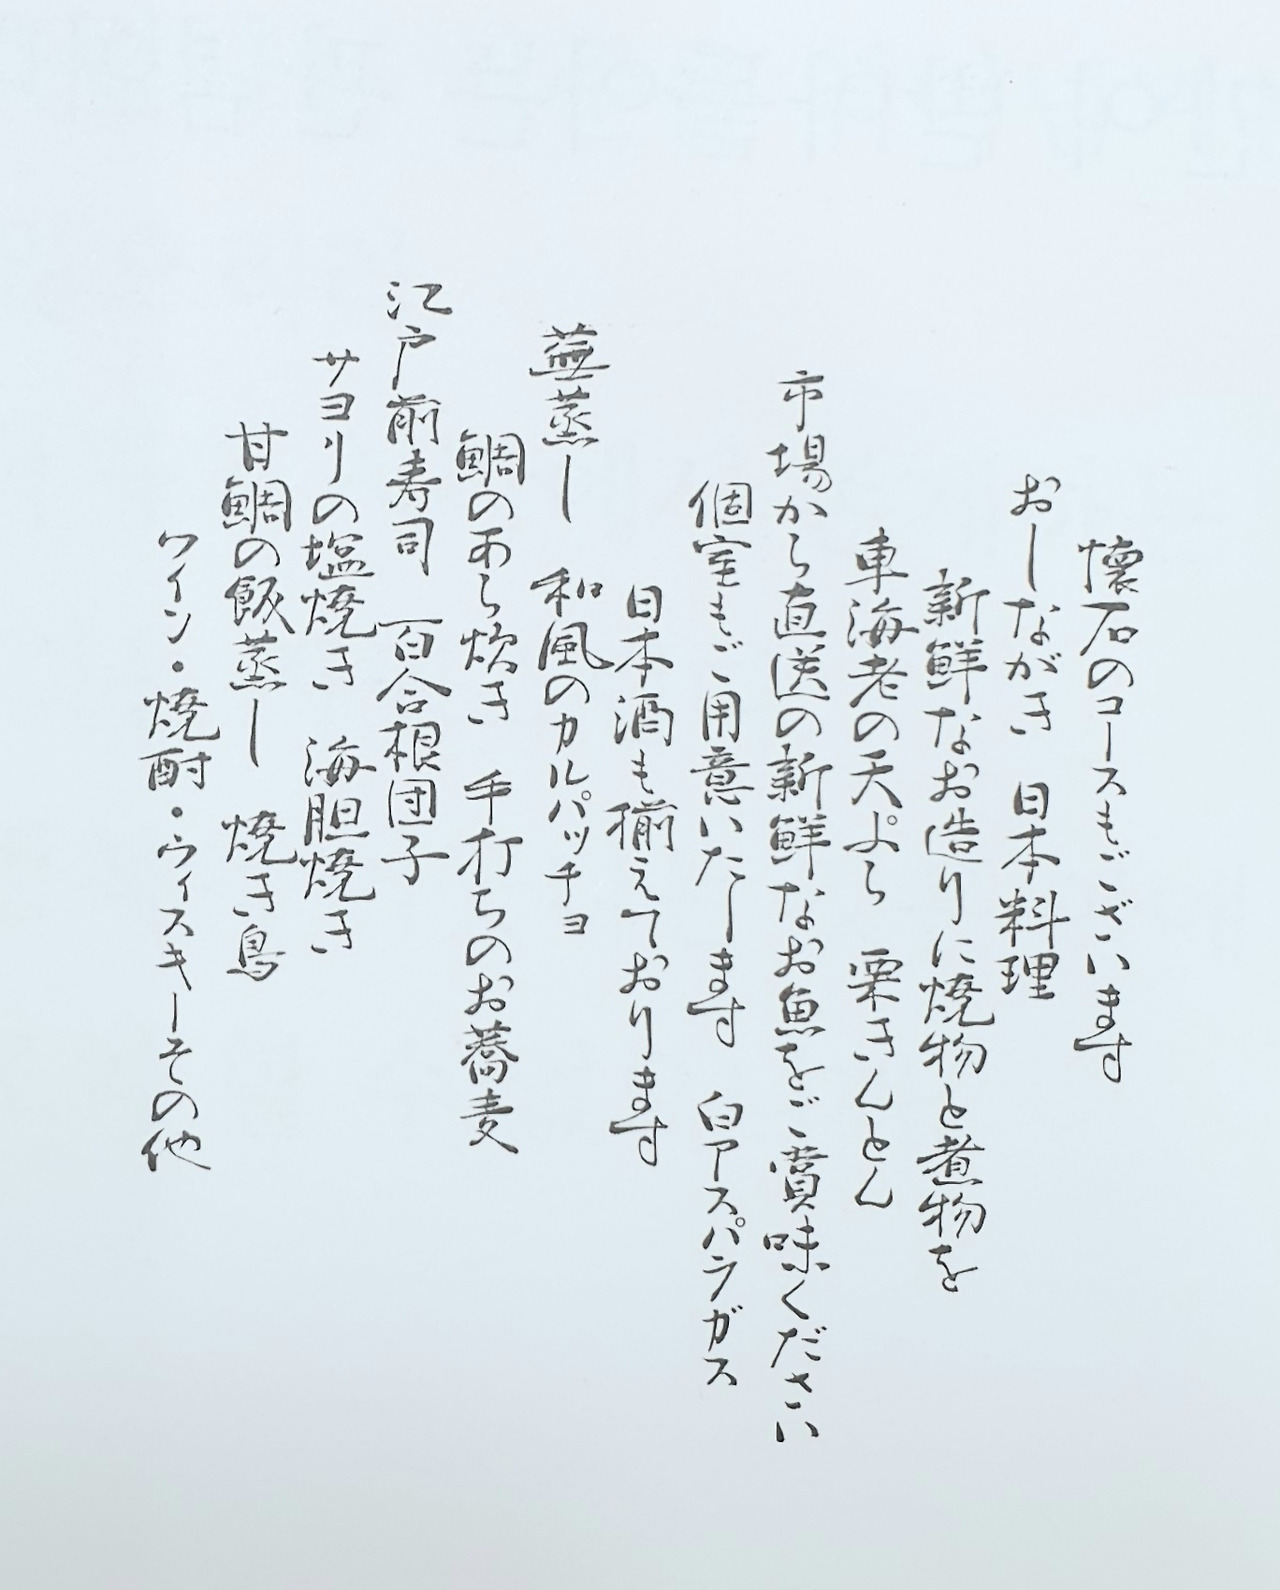 懐石のコースもございます
おしながき 日本料理
新鮮なお造りに焼物と煮物を
車海老の天ぷら 栗きんとん
市場から直送の新鮮なお魚をご賞味ください
個室もご用意いたします 白アスパラガス
日本酒も揃えております
蕪蒸し 和風のカルパッチョ
鯛のあら炊き 手打ちのお蕎麦
江戸前寿司 百合根団子
サヨリの塩焼き 海胆焼き
甘鯛の飯蒸し 焼き鳥
ワイン・焼酎・ウィスキーその他